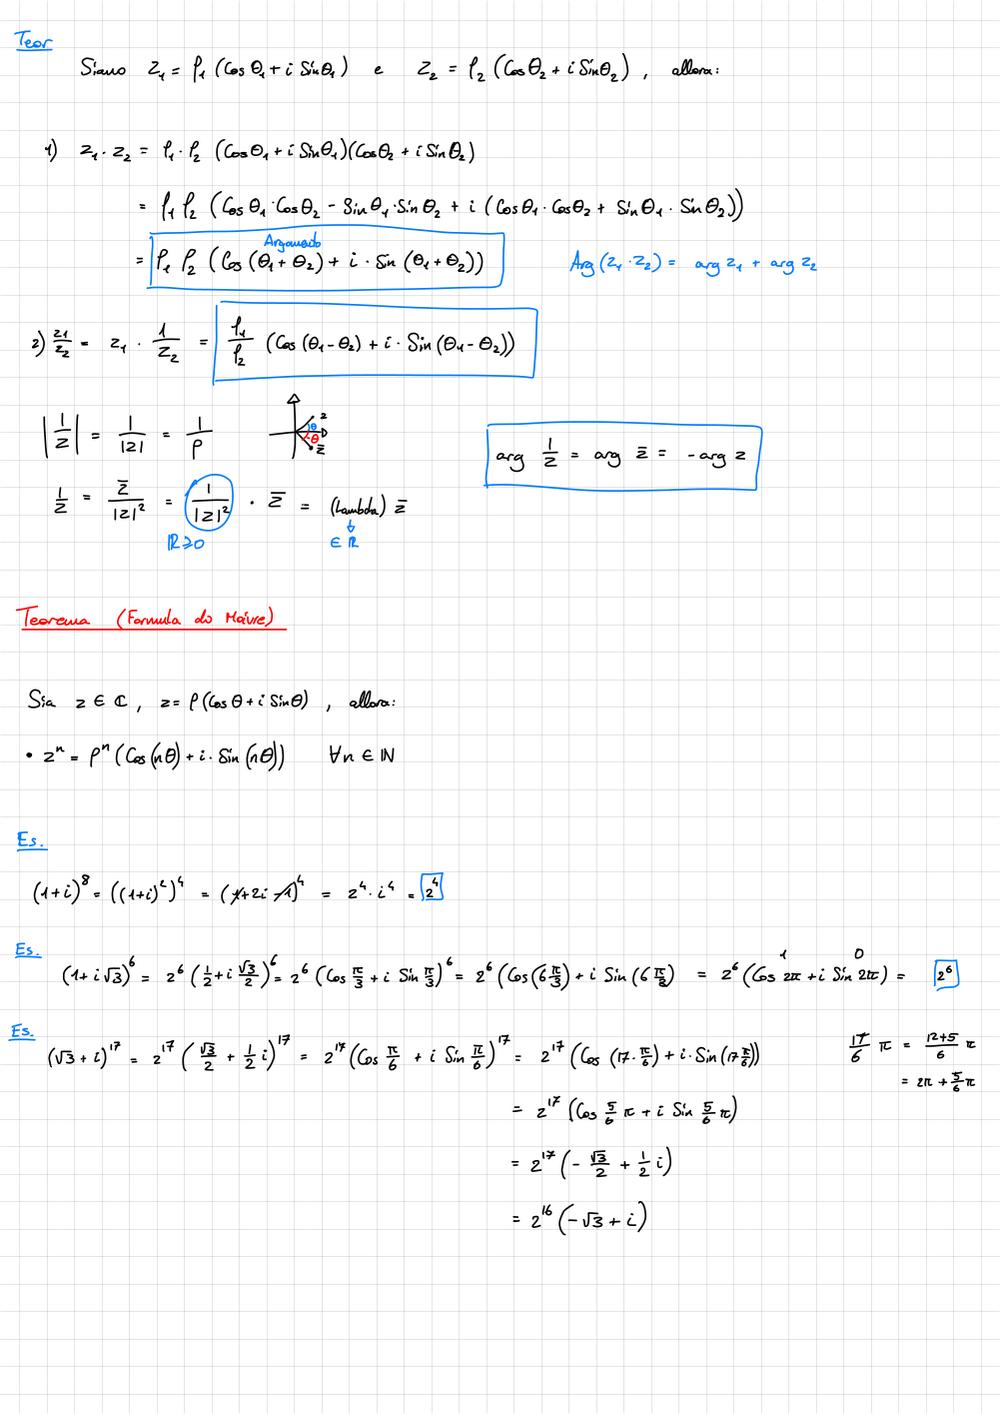 Teor
Siano z₁ = ρ₁ (Cos θ₁ + i Sin θ₁) e z₂ = ρ₂ (Cos θ₂ + i Sin θ₂) , allora:
1) z₁ · z₂ = ρ₁ · ρ₂ (Cos θ₁ + i Sin θ₁)(Cos θ₂ + i Sin θ₂)
= ρ₁ ρ₂ (Cos θ₁ · Cos θ₂ - Sin θ₁ · Sin θ₂ + i (Cos θ₁ · Cos θ₂ + Sin θ₁ · Sin θ₂))
Argomento
= ρ₁ ρ₂ (Cos (θ₁ + θ₂) + i · Sin (θ₁ + θ₂)) Arg (z₁ · z₂) = arg z₁ + arg z₂
2) z₁/z₂ = z₁ · 1/z₂ = ρ₁/ρ₂ (Cos (θ₁ - θ₂) + i · Sin (θ₁ - θ₂))
|1/z| = 1/|z| = 1/ρ z θ θ z̄
arg 1/z = arg z̄ = - arg z
1/z = z̄/|z|² = 1/|z|² · z̄ = (Lambda) z̄
ℝ ⩾ 0 ∈ ℝ
Teorema (Formula do Moivre)
Sia z ∈ ℂ , z = ρ (Cos θ + i Sin θ) , allora:
• zⁿ = ρⁿ (Cos (nθ) + i · Sin (nθ)) ∀n ∈ ℕ
Es.
(1+i)⁸ = ((1+i)²)⁴ = (1+2i-1)⁴ = 2⁴ · i⁴ = 2⁴
Es.
(1+i√3)⁶ = 2⁶ (1/2 + i √3/2)⁶ = 2⁶ (Cos π/3 + i Sin π/3)⁶ = 2⁶ (Cos (6 π/3) + i Sin (6 π/3) = 2⁶ (Cos 2π + i Sin 2π) = 2⁶
1 0
Es.
(√3 + i)¹⁷ = 2¹⁷ (√3/2 + 1/2 i)¹⁷ = 2¹⁷ (Cos π/6 + i Sin π/6)¹⁷ = 2¹⁷ (Cos (17 · π/6) + i · Sin (17 π/6)) 17/6 π = 12+5/6 π
= 2π + 5/6 π
= 2¹⁷ (Cos 5/6 π + i Sin 5/6 π)
= 2¹⁷ (- √3/2 + 1/2 i)
= 2¹⁶ (-√3 + i)